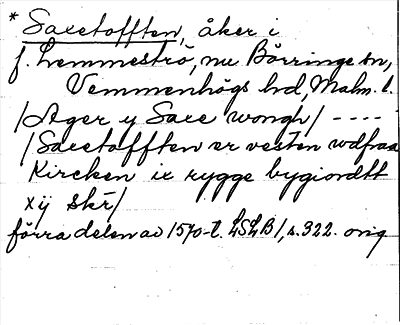 * Saxetofften, åker i
f. Lemmeströ, nu Börringe sn,
Vemmenhögs hd, Malm. l.
/Ager y Saxe wongh/ ----
/Saxetofften er vesten wdfraa
Kircken ix rygge bygiordtt
xij skr/
förra delen av 1570-t. LSLB 1, s. 322. orig